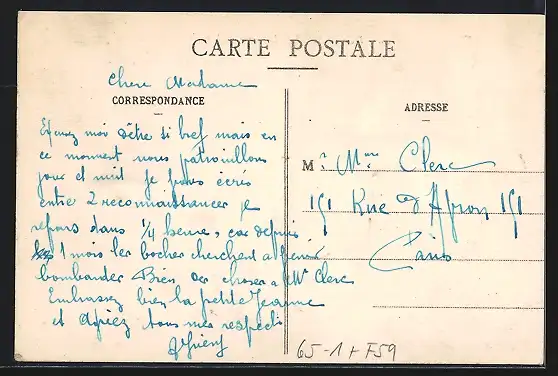 CARTE POSTALE
Chere Madame
CORRESPONDANCE
moi d'être si bref mais en
ce moment nous patrouillons
jour et nuit je vous écris
entre 2 reconnaissances je
repars dans 1/4 heure, car depuis
1 mois les boches cherchent a
bombarder Bien des choses a Mr Clerc
Embrassez bien la petite Jeanne
et agréez tous mes respects
ADRESSE
M Mme Clerc
151 Rue d'Avron 151
Paris
65-1+F59